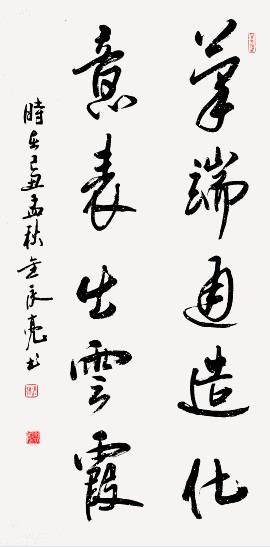 筆端通造化
意表出雲霞
時在己丑孟秋金永亮书